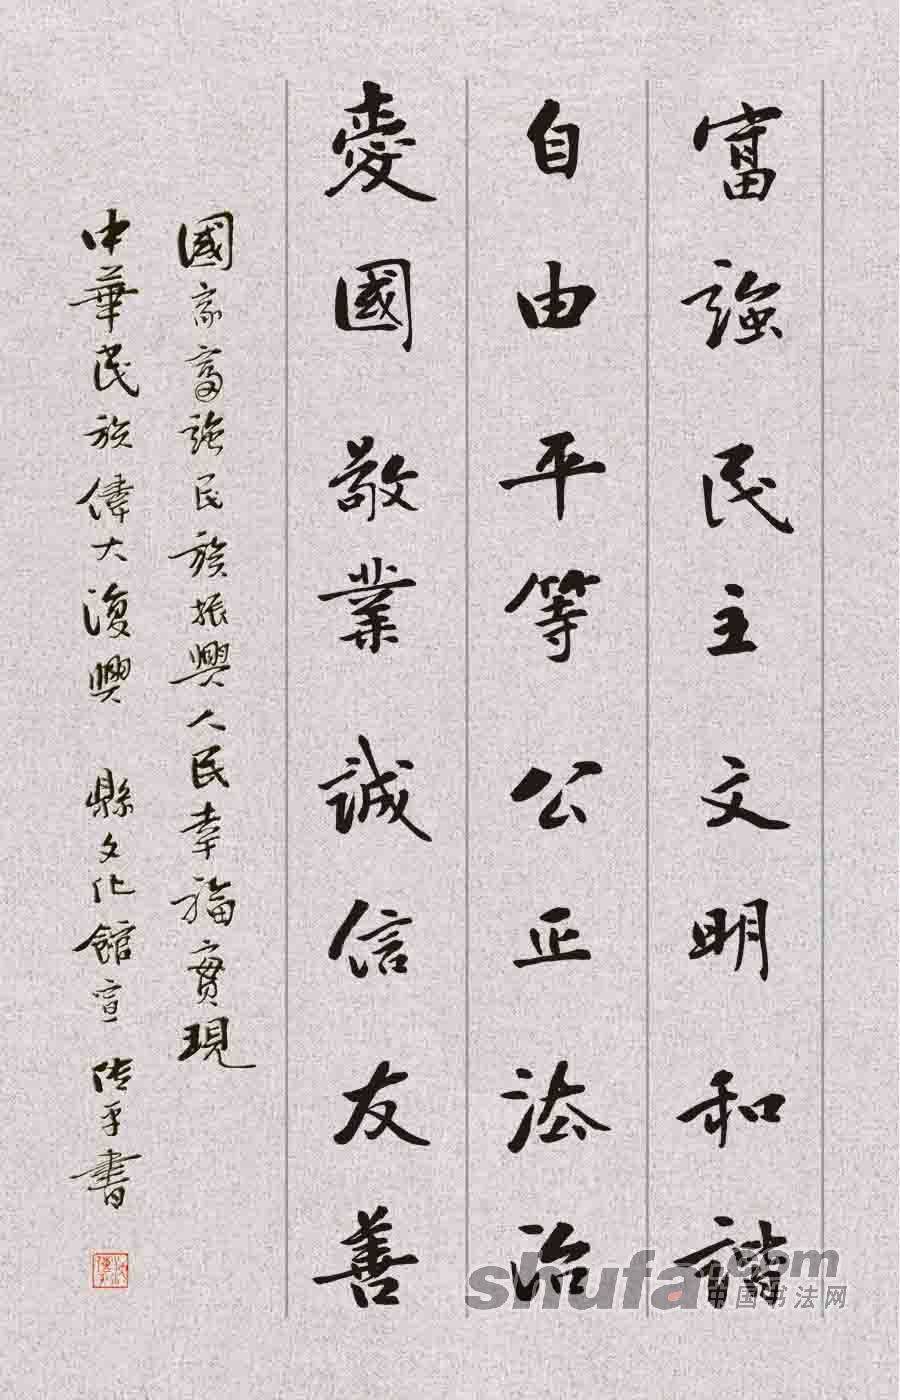 富強民主文明和諧
自由平等公正法治
愛國敬業誠信友善
國家富強民族振興人民幸福實現
中華民族偉大復興 縣文化館宣 傳平書
shufa.com
中国书法网